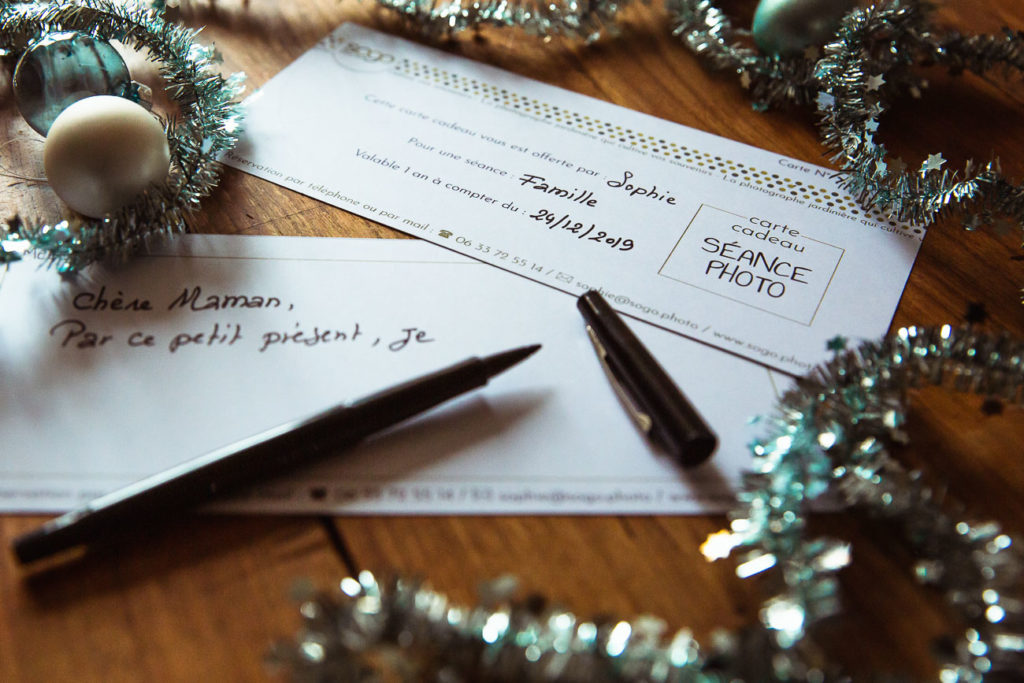 sogo
qui cultive vos souvenirs - La photographe jardinière qui cultive
Carte N°
Cette carte cadeau vous est offerte par : Sophie
Pour une séance : Famille
Valable 1 an à compter du : 24/12/2019
Réservation par téléphone ou par mail : ☎ 06 33 72 55 14 / ✉ sophie@sogo.photo / www.sogo.photo
carte
cadeau
SÉANCE
PHOTO
Chère Maman,
Par ce petit présent, je
Réservation par 72 55 14 / sophie@sogo.photo /